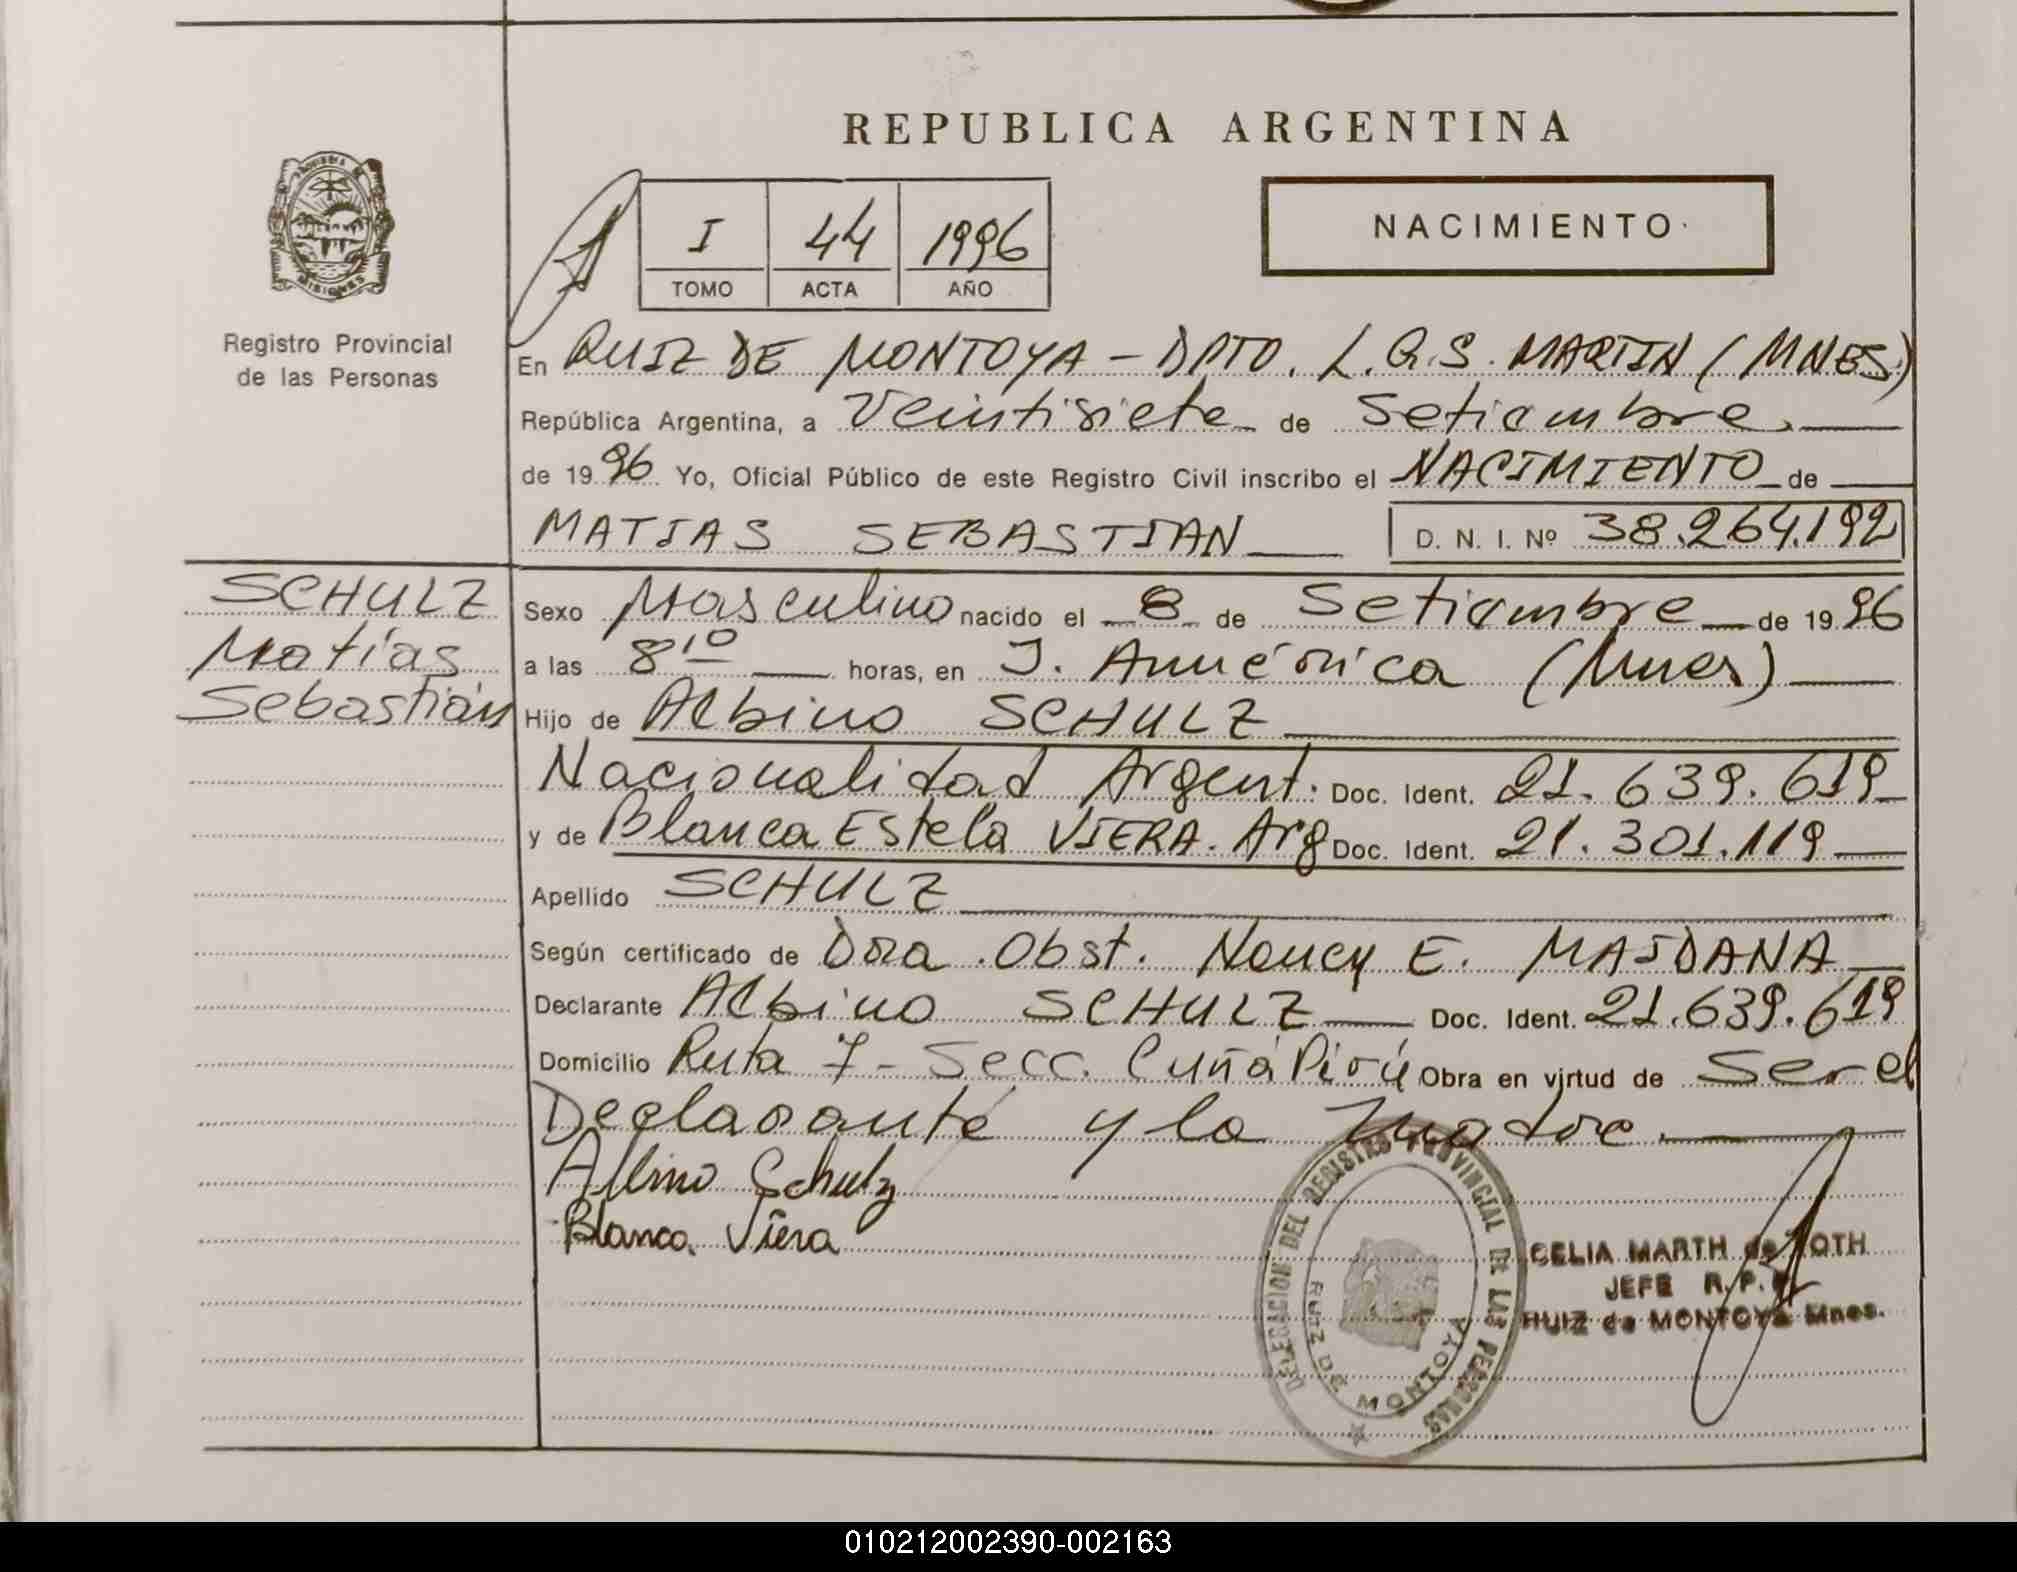 REPUBLICA ARGENTINA
I 44 1996
TOMO ACTA AÑO
NACIMIENTO
MISIONES
Registro Provincial
de las Personas
En RUIZ DE MONTOYA - DPTO. L.G.S. MARTIN (MNES)
República Argentina, a Veintisiete de Setiembre.
de 1996 Yo, Oficial Público de este Registro Civil inscribo el NACIMIENTO de
MATIAS SEBASTIAN D. N. I. Nº 38.264.192
SCHULZ
Matías
Sebastián
Sexo Masculino nacido el 8 de Setiembre de 1996
a las 8,10 horas, en J. América (Mnes)
Hijo de Albino SCHULZ
Nacionalidad Argent. Doc. Ident. 21.639.619
y de Blanca Estela VIERA. Arg Doc. Ident. 21.301.119
Apellido SCHULZ
Según certificado de Dra. Obst. Nancy E. MAIDANA
Declarante Albino SCHULZ Doc. Ident. 21.639.619
Domicilio Ruta 7 - Secc. Cuñá Pirú Obra en virtud de Ser el
Declarante y la Madre.
Albino Schulz
Blanca Viera
DELEGACION DEL REGISTRO PROVINCIAL DE LAS PERSONAS
RUIZ DE MONTOYA
CELIA MARTH de ROTH
JEFE R.P.P.
RUIZ de MONTOYA Mnes.
010212002390-002163